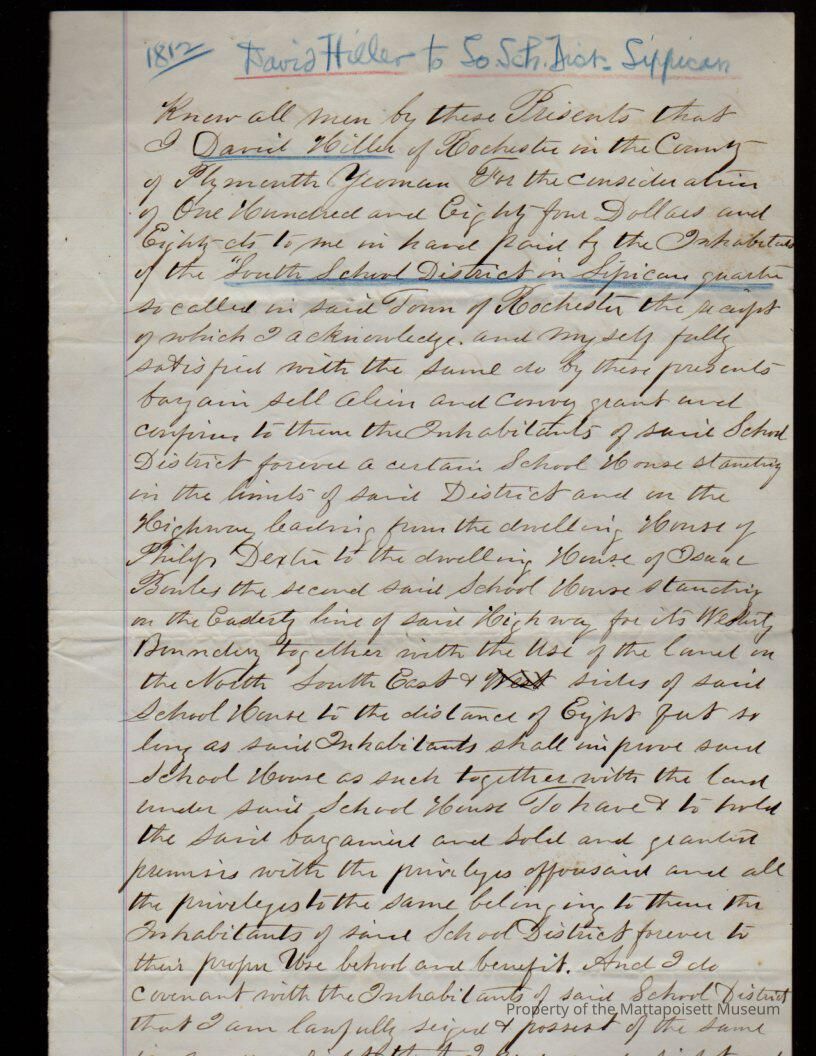 1812 David Hiller to So. Sch. Dist. Sippican
Know all men by these Presents that
I David Hiller of Rochester in the County
of Plymouth Yeoman For the consideration
of One Hundred and Eighty four Dollars and
Eighty cts to me in hand paid by the Inhabitants
of the "South School District in Sipican quarter
so called in said Town of Rochester the receipt
of which I acknowledge. and myself fully
satisfied with the same do by these presents
bargain sell alien and convey grant and
confirm to them the Inhabitants of said School
District forever a certain School House standing
in the limits of said District and on the
Highway leading from the dwelling House of
Philip Dexter to the dwelling House of Isaac
Bowles the second said School House standing
on the Easterly line of said Highway for its Westerly
Boundery together with the Use of the land on
the North South East & West sides of said
School House to the distance of Eight feet so
long as said Inhabitants shall improve said
School House as such together with the land
under said School House To have & to hold
the said bargained and sold and granted
premises with the privileges afforesaid and all
the privileges to the same belonging to them the
Inhabitants of said School District forever to
their proper Use behoof and benefit. And I do
covenant with the Inhabitants of said School District
that I am lawfully seized & possest of the same
Property of the Mattapoisett Museum